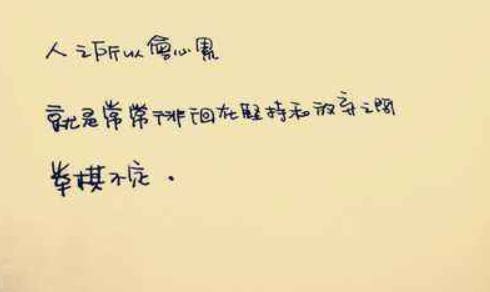 人之所以會心累
就是常常徘徊在堅持和放弃之間
举棋不定.